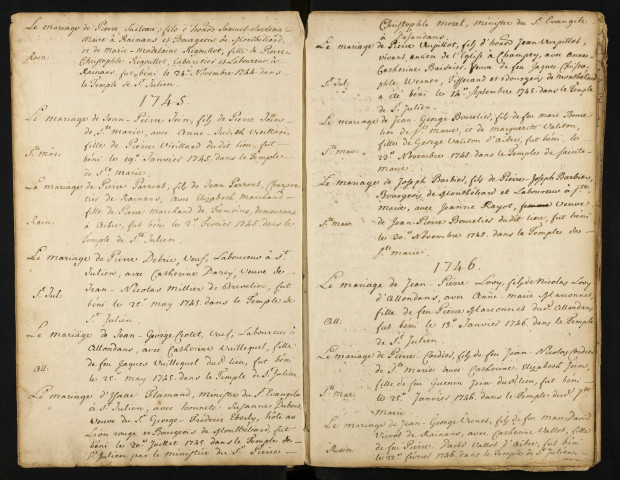 Le mariage de Pierre Suileau, fils d'honoré Samuel
Maire à Rainans et Bourgeois de Montbéliard,
et de Marie-Madelaine Riguillot, fille de Pierre
Christophle Riguillot, Cabaretier et Laboureur à
Rain: Rainans, fut béni le 24e. Novembre 1744. dans
le Temple de St. Julien.
1745.
Le mariage de Jean-Pierre Jeen, fils de Pierre Jeen
de Ste. marie, avec Anne-Judith Vieillard
fille de Pierre Vieillard du dit lieu, fut
Ste. mar: béni le 19e. Janvier 1745. dans le Temple
de Ste. marie.
Le mariage de Pierre Parrent, fils de Jean Parrent, Charpen-
tier de Rainans, avec Elizabeth marchand
fille de Pierre marchand de Semoins, demeurans
Rain: à Aibre, fut béni le 2e. Fevrier 1745. dans le
Temple de St. Julien.
Le mariage de Pierre Debrie, Veuf, Laboureur à St.
Julien, avec Catherine Darey, Veuve de
Jean-Nicolas Millier de Brevelier, fut
St. Jul: béni le 25e. may 1745. dans le Temple de
St. Julien.
Le mariage de Jean-George Crolet, Veuf, Laboureur à
Allondans, avec Catherine Vuillequet, fille
All: de feu Jaques Vuillequet du st. lieu, fut béni
le 25e. may 1745. dans le Temple de St. Julien
Le mariage d'Isaac Flamand, ministre du St. Evangile
à St. Julien, avec honnete Suzanne Dubois,
Veuve du Sr. George-Frideric Eberly, hôte au
Lion rouge et Bourgeois de Montbéliard, fut
béni le 20e. Juillet 1745. dans le Temple de
St. Julien, par le ministère du Sr. Pierre-
Christophle morel, ministre du St. Evangile
à Desandans.
Le mariage de Pierre Verpillot, fils d'honoré Jean Verpillot,
vivant ancien de l'Eglise à Champey, avec Anne-
Catherine Baisnier, Veuve de feu Jaques Christo-
St. Jul: phle Werner, Tisserand et Bourgeois de Montbeliard
a été béni le 14e. Septembre 1745. dans le Temple
de St. Julien.
Le mariage de Jean-George Bourelier, fils de feu marc Boure-
lier de Ste. Marie, et de Marguerite Valiton,
filles de George Valiton d'Aibre, fut béni le
Ste. mar: 23e. Novembre 1745. dans le Temple de Sainte-
marie.
Le mariage de Joseph Barbier, fils de Pierre-Joseph Barbier,
Bourgeois de Montbéliard et Laboureur à Ste.
Marie, avec Jeanne Rayot, Veuve
Ste. mar: de Jean-Pierre Bourelier du dit lieu, fut béni
le 30e. Novembre 1745. dans le Temple de
Ste. marie.
1746.
Le mariage de Jean-Pierre Lovy, fils de Nicolas Lovy
d'Allondans, avec Anne-marie Marconnet,
fille de feu Pierre Marconnet du st. Allondans,
All: fut béni le 18e. Janvier 1746. dans le Temple
de St. Julien.
Le mariage de Pierre Cordier, fils de feu Jean-Nicolas Cordier
de Ste. Marie avec Catherine Elizabeth Jeen
fille de feu Guenin Jeen du st. lieu, fut béni
Ste. Mar: le 25e. Janvier 1746. dans le Temple de Ste.
Marie
Le mariage de Jean-George Vienot, fils de feu marc David
Vienot de Rainans, avec Catherine Vallot, fille
Rain: de feu Pierre-David Vallot d'Aibre, fut béni
le 22e. fevrier 1746. dans le Temple de St. Julien.